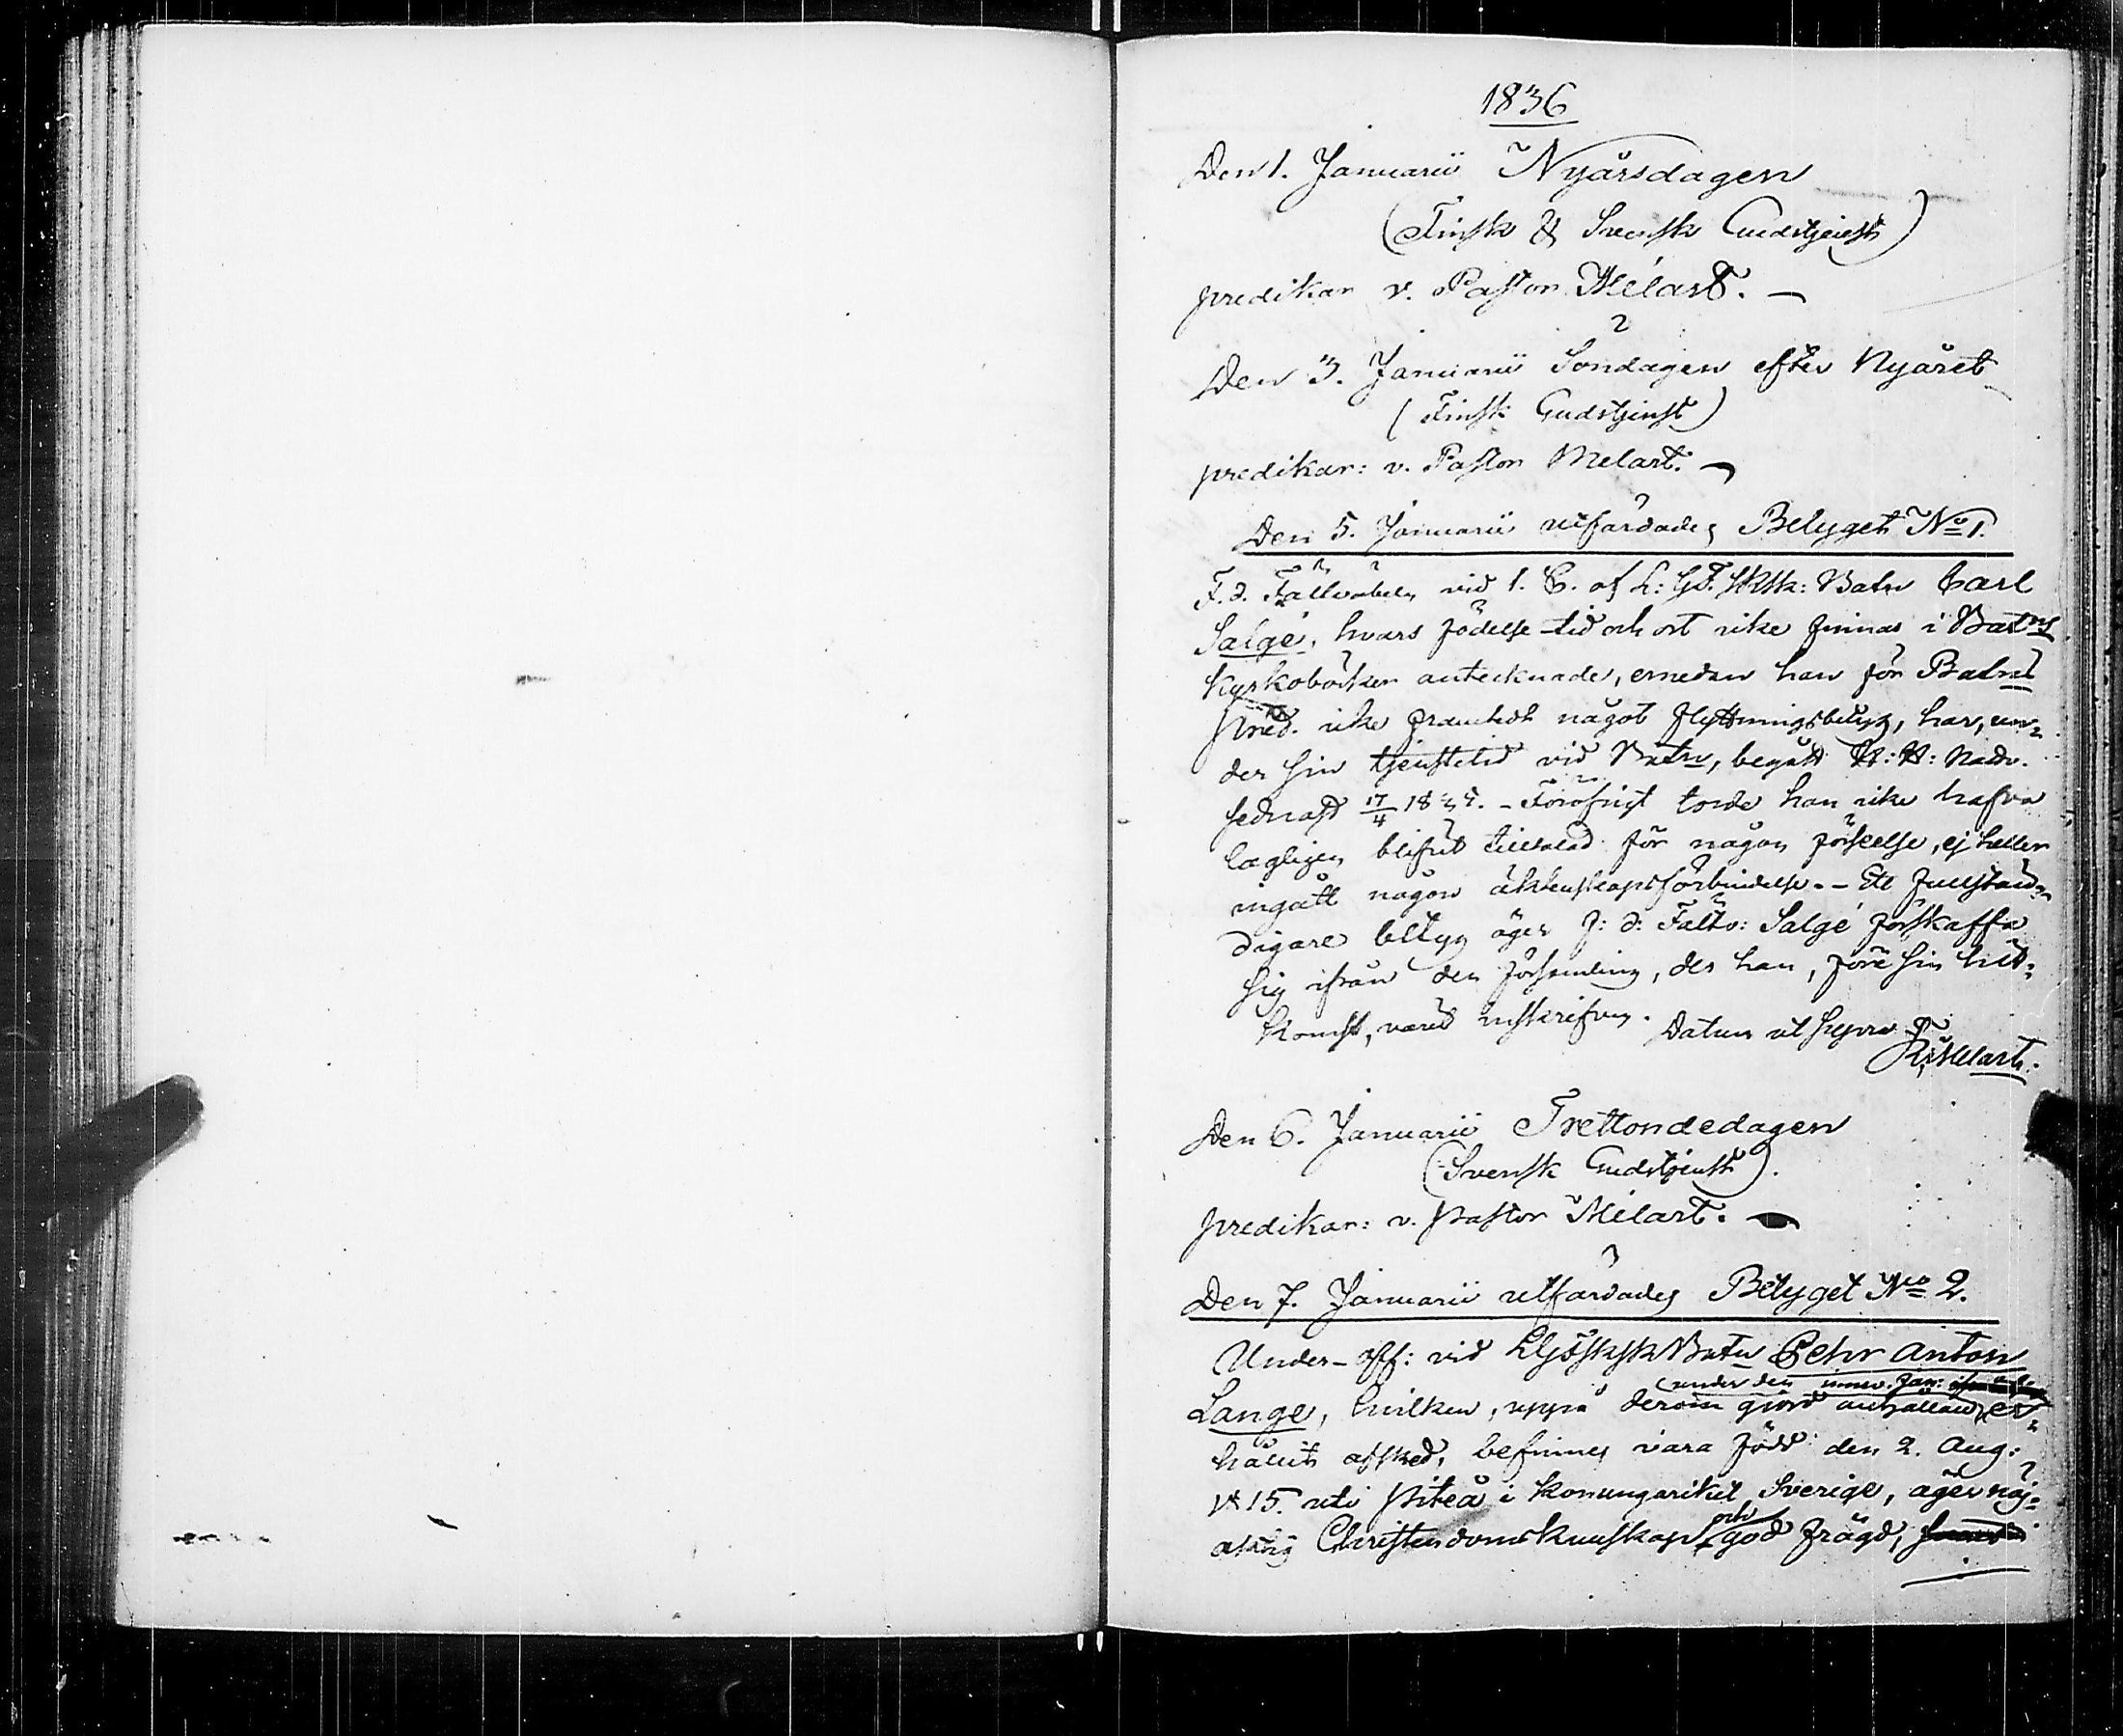 1836
Den 1. Januarii Nyårsdagen
(Finsk & Svensk Gudstjenst)
predikar v. Pastor Melart. —
Den 3. Januarii Söndagen efter Nyåret
(Finsk Gudstjenst)
predikar: v. Pastor Melart. —
Den 5. Januarii utfärdades Betyget No 1.
F. d. Fältväbeln vid 1. C. af L: Gd. SkSk: Batn Carl
Salgé, hvars födelse-tid och ort icke finnas i Batns
kyrkoböcker antecknade, emedan han för Batns
Pred. icke framtedt något flyttningsbetyg, har, un-
der sin tjenstetid vid Batn, begått H: H: Nattv.
sednast 17/4 1834. - Föröfrigt torde han icke hafva
lagligen blifvit tilltalad för någon förseelse, ej heller
ingått någon äktenskapsförbindelse. - Ett fullstän-
digare betyg äger f: d: Fältv: Salgé förskaffa
sig ifrån den församling, der han, före sin hit-
komst, varit inskrifven. Datum ut supra
Melart.
Den 6. Januarii Trettondedagen
(Svensk Gudstjenst).
predikar: v. Pastor Melart. —
Den 7. Januarii utfärdades Betyget No 2.
Under-off: vid LGdSkSk Batn Pehr Anton
under den innev. Jan:
Lange, hvilken, uppå derom gjord anhållan, er-
hållit afsked, befinnes vara född den 2. Aug:
1815. uti Piteå i Konungariket Sverige, äger nöj-
aktig Christendomskunskap och god frägd,